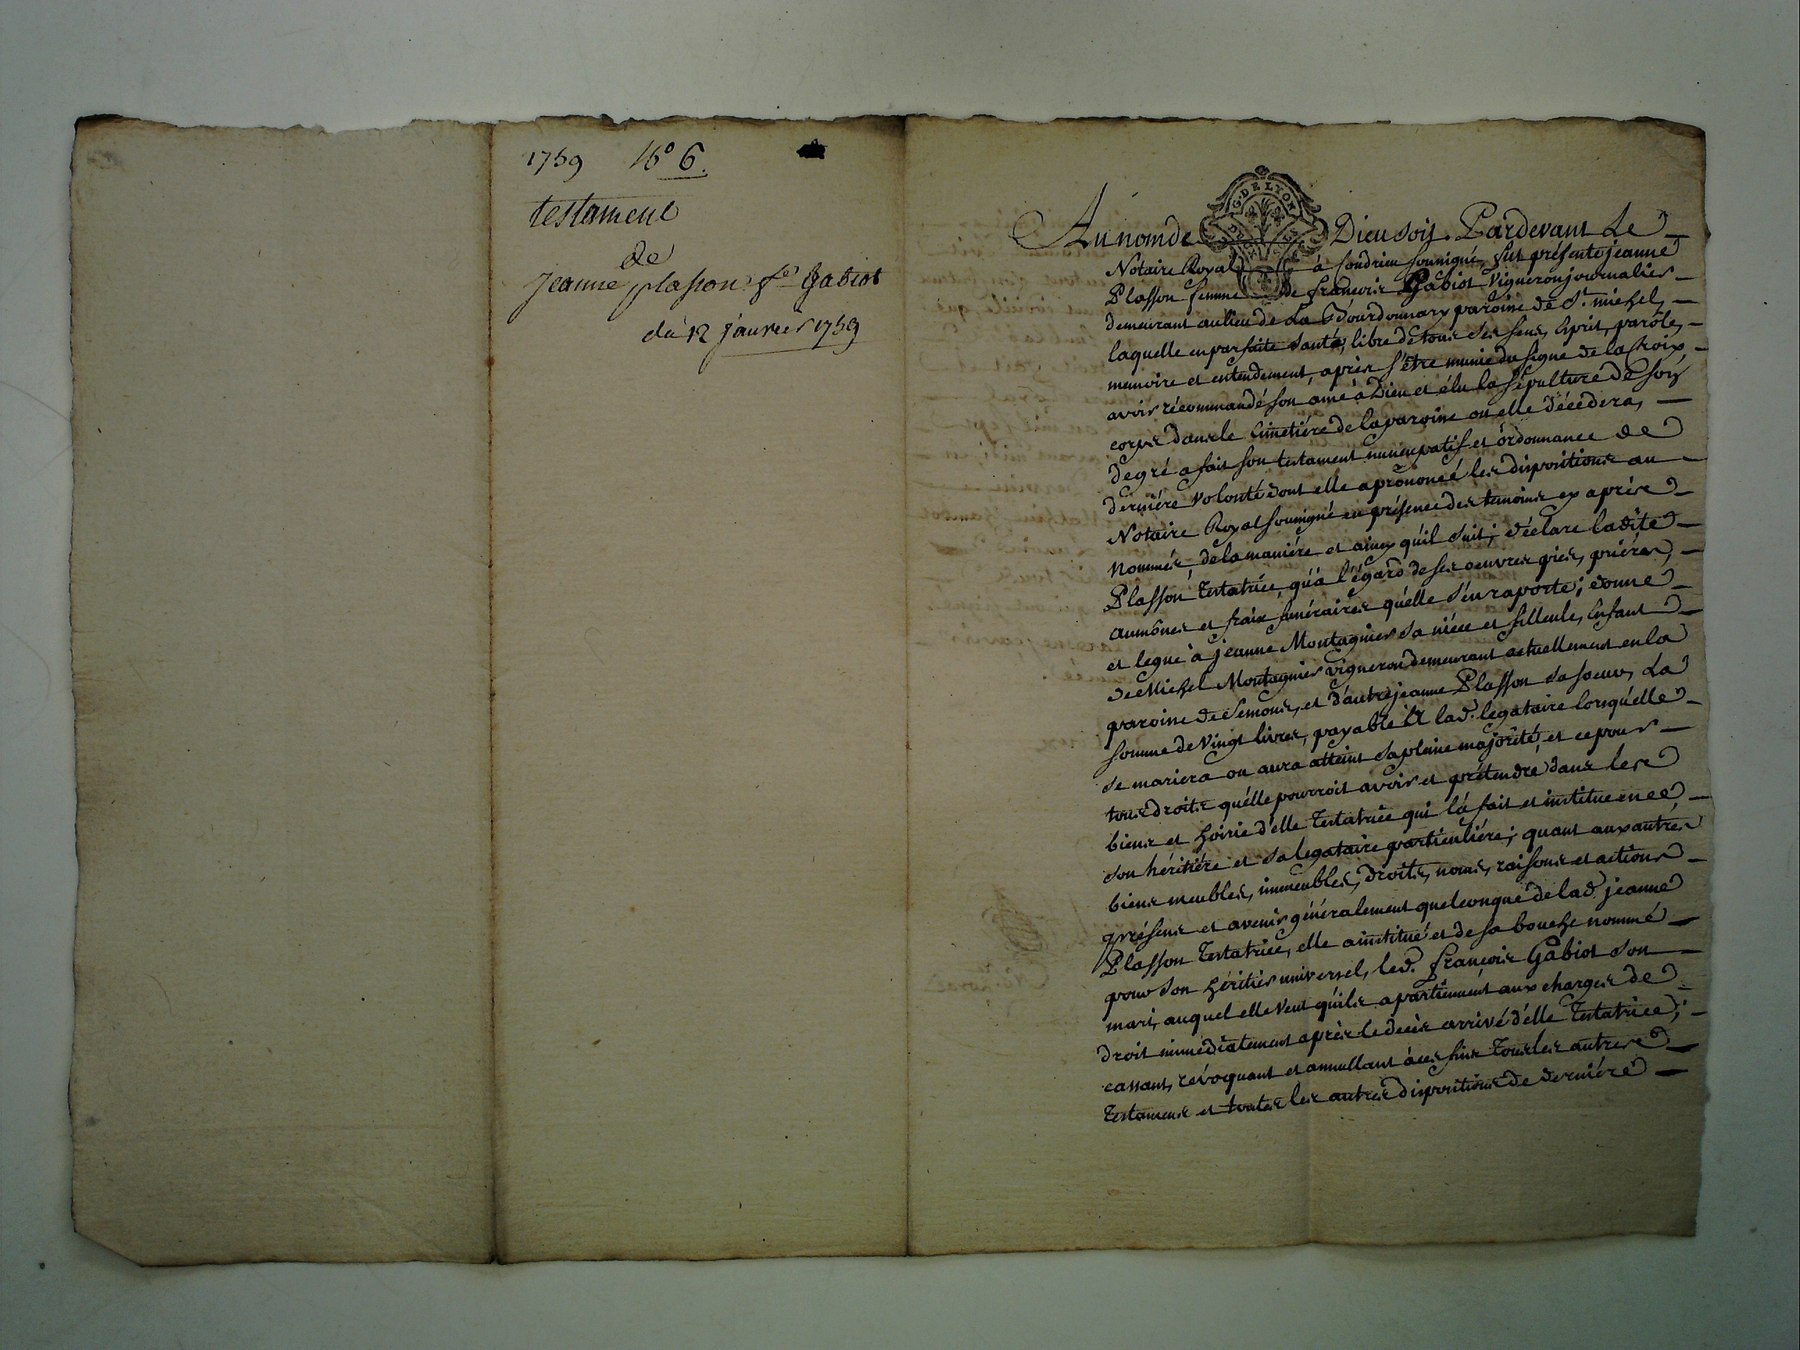 1759 N° 6.
testament
de
jeanne plasson fe Gabiot
du 12 janvier 1759
G. DE LYON
Au nom de Dieu soit. Pardevant Le
Notaire Royal à Condrieu soussigné, fut présente jeanne
Plasson femme de françois Gabiot Vigneron journalier
demeurant au lieu de La Bourdonnary paroisse de St. michel,
laquelle en parfaite santé, libre de tous ses sens, esprit, parôle,
memoire et entendement, après s'être munie du signe de la Croix
avoir récommandé son ame à Dieu et élu la sépulture de son
corps dans le Cimetiére de la paroisse ou elle décédera,
de gré a fait son testament nuncupatif et ordonnance de
derniére volonté dont elle a prononcé les dispositions au
Notaire Royal soussigné en présence des temoins cy après
nommés de la maniére et ainsy qu'il suit; déclare ladite
Plasson Testatrice, qu'à l'égard de ses oeuvres pies, priéres,
aumônes et fraix funéraires qu'elle s'en raporte; donne
et legue à jeanne Montagnier sa niéce et filleule, enfant
de Michel Montagnier vigneron demeurant actuellement en la
paroisse de Semons, et d'autre jeanne Plasson sa soeur, La
somme de Vingt livres, payable à lad. legataire lorsqu'elle
se mariera ou aura atteint sa pleine majorité, et ce pour
tous droits qu'elle pourroit avoir et prétendre dans les
biens et hoirie d'elle Testatrice qui l'a fait et institue en ce
son héritiére et sa legataire particuliére; quant aux autres
biens meubles, immeubles, droits, noms, raisons et actions
présens et avenir généralement quelconque de lad. jeanne
Plasson Testatrice, elle a institué et de sa bouche nommé
pour son héritier universel, led. françois Gabiot son
mari, auquel elle veut qu'ils apartiennent aux charges de
droit immédiatement après le decès arrivé d'elle Testatrice;
cassant, révoquant et annullant à ces fins tous les autres
Testamens et toutes les autres dispositions de derniére